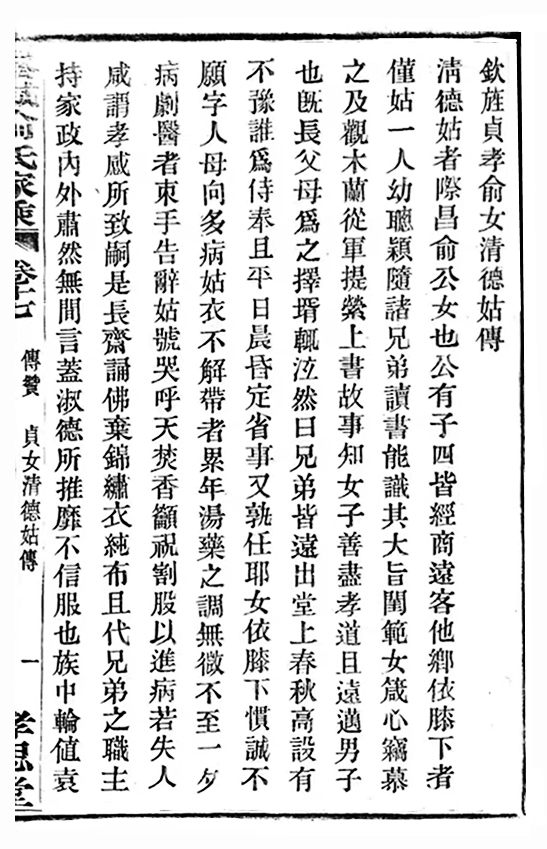 欽旌貞孝俞女清德姑傳
清德姑者際昌俞公女也公有子四皆經商遠客他鄉依膝下者
僅姑一人幼聰穎隨諸兄弟讀書能識其大旨閨範女箴心竊慕
之及觀木蘭從軍提縈上書故事知女子善盡孝道且遠邁男子
也既長父母爲之擇壻輒泣然曰兄弟皆遠出堂上春秋高設有
不豫誰爲侍奉且平日晨昏定省事又孰任耶女依膝下慣誠不
願字人母向多病姑衣不解帶者累年湯藥之調無微不至一夕
病劇醫者束手告辭姑號哭呼天焚香籲祝割股以進病若失人
咸謂孝感所致嗣是長齋誦佛棄錦繡衣純布且代兄弟之職主
持家政內外肅然無間言蓋淑德所推靡不信服也族中輪值袁
俞氏家乘 卷十七 傳贊 貞女清德姑傳 一 孝思堂